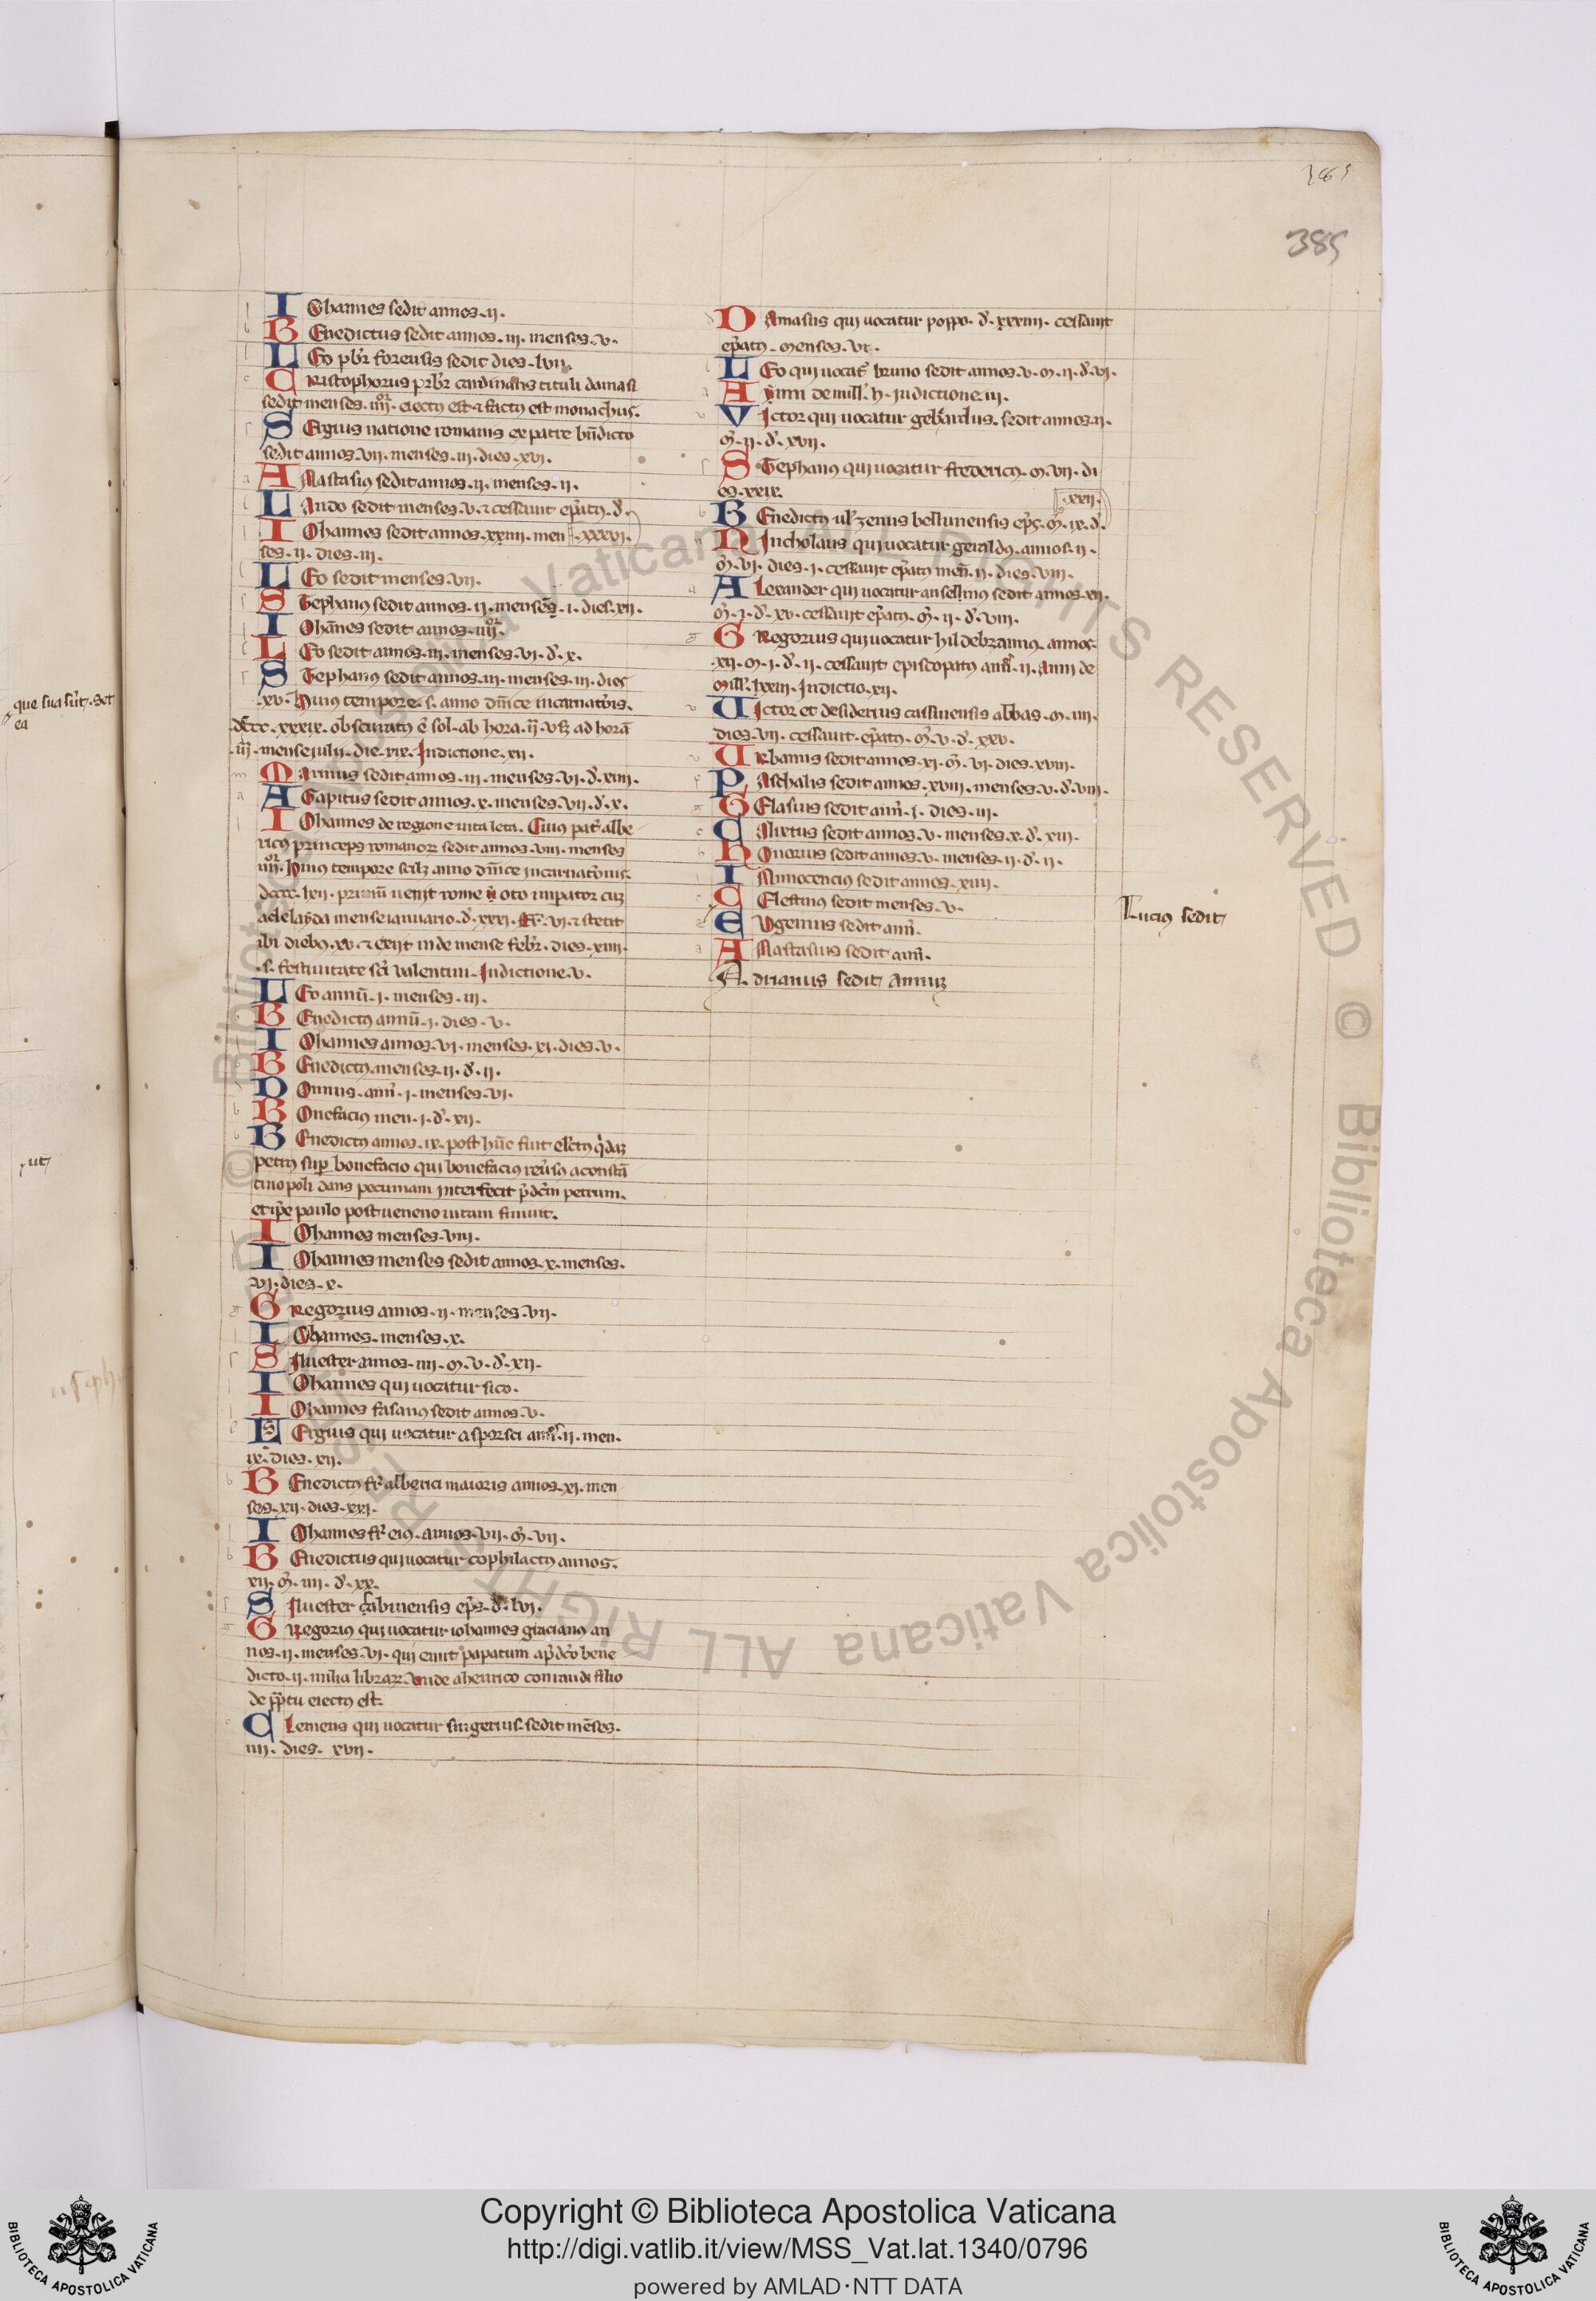 385
IOhannes sedit annos .ii.
BEnedictus sedit annos .iii. menses .v.
LEo pbr forensis sedit dies .lvii.
CRistophorus prbr cardinalis tituli damasi
sedit menses .iiii. eiectus est & factus est monachus.
SErgius natione romanus ex patre bndicto
sedit annos .vii. menses .iii. dies .xvi.
ANastasius sedit annos .ii. menses .ii.
LAndo sedit menses .v. & cessauit epatus .d.
.xxxvi.
IOhannes sedit annos .xxiiii. men
ses .ii. dies .iii.
LEo sedit menses .vii.
STephanus sedit annos .ii. menses .i. dies .xii.
IOhanes sedit annos .iiii.
LEo sedit annos .iii. menses .vi. d. x.
STephanus sedit annos .iii. menses .iii. dies
.xv. Huius tempore .s. anno dnice incarnationis.
.dcccc.xxxix. obscuratus e sol. ab hora .iii. usq ad hora
.iii. mense iulii. die .xix. Indictione .xii.
MArinus sedit annos .iii. menses .vi. d. xiiii.
AGapitus sedit annos .x. menses .vii. d. x.
IOhannes de regione uia leta. Cuius pat albe
ricus princeps romanor sedit annos .viii. menses
iiii. Huius tempore scilz anno dnice incarnationis.
dcccc.lxii. primu uenit rome oto impator cuz
adelayda mense ianuario .d. xxxi. fr. vi. & stetit
ibi diebus .xv. & exijt inde mense febr. dies .xiiii.
.s. festiuitate sci ualentini. Indictione .v.
LEo annu .i. menses .iii.
BEnedictus annu .i. dies .v.
IOhannes annos .vi. menses .xi. dies .v.
BEnedictus menses .ii. d. ii.
DOnnus. ann .i. menses .vi.
BOnefacius men .i. d. xii.
BEnedictus annos .ix. post hunc fuit electus qdaz
petrus sup bonefacio qui bonefacius reuersus a consta
tinopoli dans pecuniam interfecit pdcm petrum.
et ipe paulo post ueneno uitam finiuit.
IOhannes menses .viii.
IOhannes menses sedit annos .x. menses.
.vi. dies .x.
GRegorius annos .ii. menses .vii.
IOhannes. menses .x.
SIluester annos .iiii. m. v. d. xii.
IOhannes qui uocatur sico.
IOhannes fasanus sedit annos .v.
SErgius qui uocatur asporsci annos .ii. men.
ix. dies .xii.
BEnedictus fr alberici maioris annos .xi. men
ses .xii. dies .xxi.
IOhannes fr eius. annos .vii. m. vii.
BEnedictus qui uocatur cophilactus annos.
xii. m. iiii. d. xx.
SIluester sabinensis eps .d. lvi.
GRegorius qui uocatur iohannes gracianus an
nos .ii. menses .vi. qui emit papatum a pdco bene
dicto .ii. milia librar. unde a henrico conradi filio
de pptu eiectus est.
CLemens qui uocatur singerius. sedit meses.
iiii. dies. xvii.
DAmasus qui uocatur poppo. d. xxxiiii. cessauit
epatus. menses .vi.
LEo qui uocat bruno sedit annos .v. m. ii. d. vi.
Anni de mill. h. indictione .iii.
VIctor qui uocatur gebardus. sedit annos .ii.
m. ii. d. xvii.
STephanus qui uocatur fredericus. m. vii. di
es .xxix.
.xxii.
BEnedictus uel zenus bellunensis eps. m. ix. d.
NIncholaus qui uocatur geraldus. annos .ii.
m. vi. dies .i. cessauit epatus men .ii. dies .viii.
ALexander qui uocatur ansellmus sedit annos .xii.
m. i. d. xv. cessauit epatus. m. ii. d. viii.
GRegorius qui uocatur hildebrannus. annos.
.xii. m. i. d. ii. cessauit episcopatus ann .ii. Anni de
mill. lxxiii. Indictio .xii.
UIctor et desiderius cassinensis abbas. m. iiii.
dies .vii. cessauit. epatus. m. v. d. xxv.
URbanus sedit annos .xi. m. vi. dies .xviii.
PAschalis sedit annos .xviii. menses .v. d. viii.
GElasius sedit ann .i. dies .iii.
CAlixtus sedit annos .v. menses .x. d. xiii.
HOnorius sedit annos .v. menses .ii. d. ii.
INnocencius sedit annos .xiiii.
CElestinus sedit menses .v.
Lucius sedit
EUgenius sedit ann.
ANastasius sedit ann.
Adrianus sedit annus
que sua sunt. Set
ea
ut
© Biblioteca Apostolica Vaticana ALL RIGHTS RESERVED © Biblioteca Apostolica Vaticana ALL RIGHTS RESERVED
BIBLIOTECA APOSTOLICA VATICANA
Copyright © Biblioteca Apostolica Vaticana
http://digi.vatlib.it/view/MSS_Vat.lat.1340/0796
powered by AMLAD·NTT DATA
BIBLIOTECA APOSTOLICA VATICANA